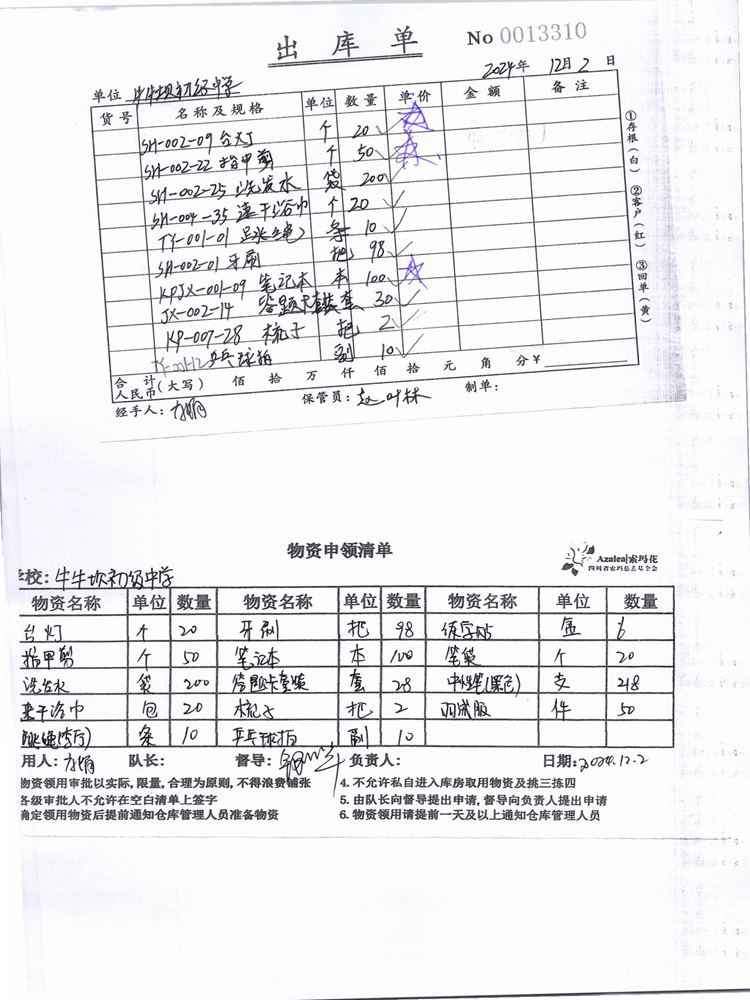 出库单 No 0013310
2024年 12月 2日
单位 牛牛坝初级中学
货号 名称及规格 单位 数量 单价 金额 备注
SH-002-09 台灯 个 20
SH-002-22 指甲剪 个 50
SH-002-25 洗发水 袋 200
SH-004-35 速干浴巾 个 20
TY-001-01 跳绳 条 10
SH-002-01 牙刷 把 98
KPJX-001-09 笔记本 本 100
JX-002-14 答题卡套装 套 30
KP-007-28 梳子 把 2
乒乓球拍 副 10
合计人民币(大写) 佰 拾 万 仟 佰 拾 元 角 分 ¥
经手人: 方娟 保管员: 赵叶林 制单:
①存根(白) ②客户(红) ③回单(黄)
物资申领清单
Azalea|索玛花
四川省索玛慈善基金会
学校: 牛牛坝初级中学
物资名称 单位 数量 物资名称 单位 数量 物资名称 单位 数量
台灯 个 20 牙刷 把 98 练字帖 盒 6
指甲剪 个 50 笔记本 本 100 笔袋 个 20
洗发水 袋 200 答题卡套装 套 28 中性笔(黑色) 支 218
速干浴巾 包 20 梳子 把 2 羽绒服 件 50
跳绳 条 10 乒乓球拍 副 10
用人: 方娟 队长: 督导: 负责人: 日期: 2024.12.2
物资领用审批以实际, 限量, 合理为原则, 不得浪费铺张 4. 不允许私自进入库房取用物资及挑三拣四
各级审批人不允许在空白清单上签字 5. 由队长向督导提出申请, 督导向负责人提出申请
确定领用物资后提前通知仓库管理人员准备物资 6. 物资领用请提前一天及以上通知仓库管理人员